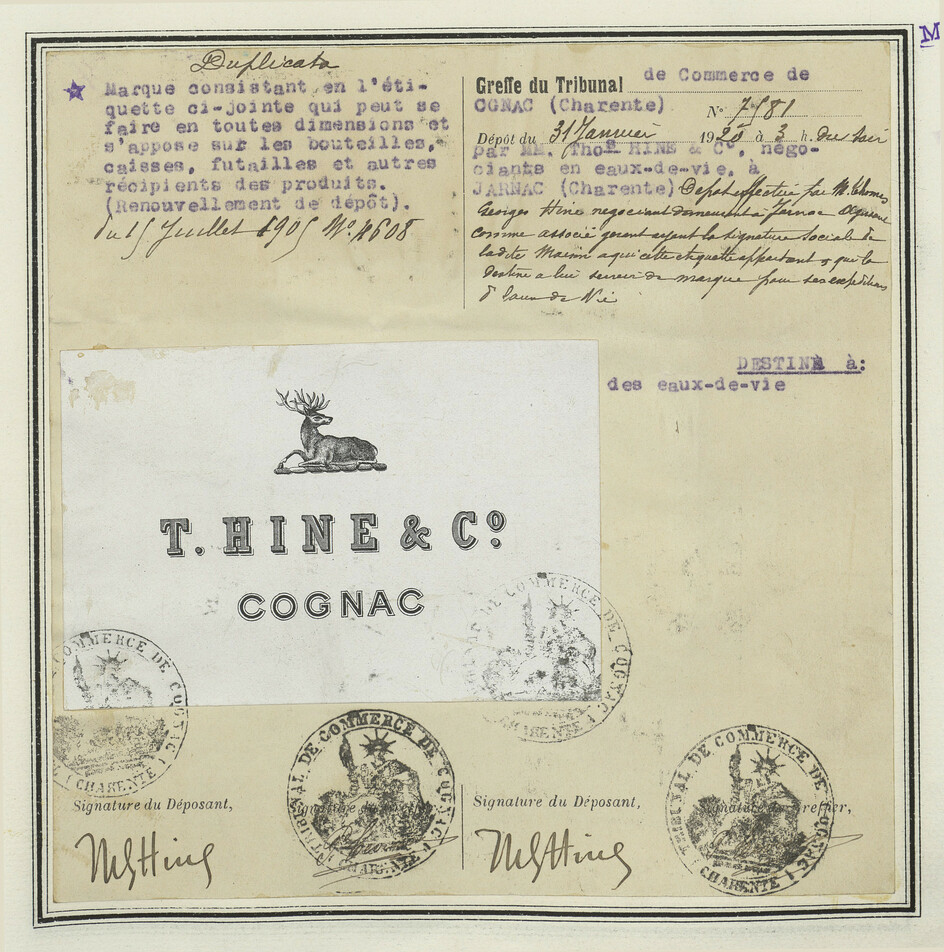 M
Duplicata
Marque consistant en l'éti-
quette ci-jointe qui peut se
faire en toutes dimensions et
s'appose sur les bouteilles,
caisses, futailles et autres
récipients des produits.
(Renouvellement de dépôt).
du 15 Juillet 1905 No 4608
Greffe du Tribunal de Commerce de
COGNAC (Charente) No 7581
Dépôt du 31 Janvier 1920 à 3 h. du soir
par MM. Thos HINE & Co, négo-
ciants en eaux-de-vie, à
JARNAC (Charente) Depot effectué par M. Thomas
Georges Hine negociant demeurant à Jarnac
comme associé gerant ayant la signature Sociale de
ladite Maison a qui cette etiquette appartient & que la
destine a lui servir de marque pour ses expeditions
d'eaux de Vie
DESTINÉ à:
des eaux-de-vie
T. HINE & Co.
COGNAC
COMMERCE DE COGNAC
CHARENTE
COMMERCE DE COGNAC
CHARENTE
Signature du Déposant,
Signature du Greffier,
TRIBUNAL DE COMMERCE DE COGNAC
CHARENTE
Signature du Déposant,
Signature du Greffier,
TRIBUNAL DE COMMERCE DE COGNAC
CHARENTE